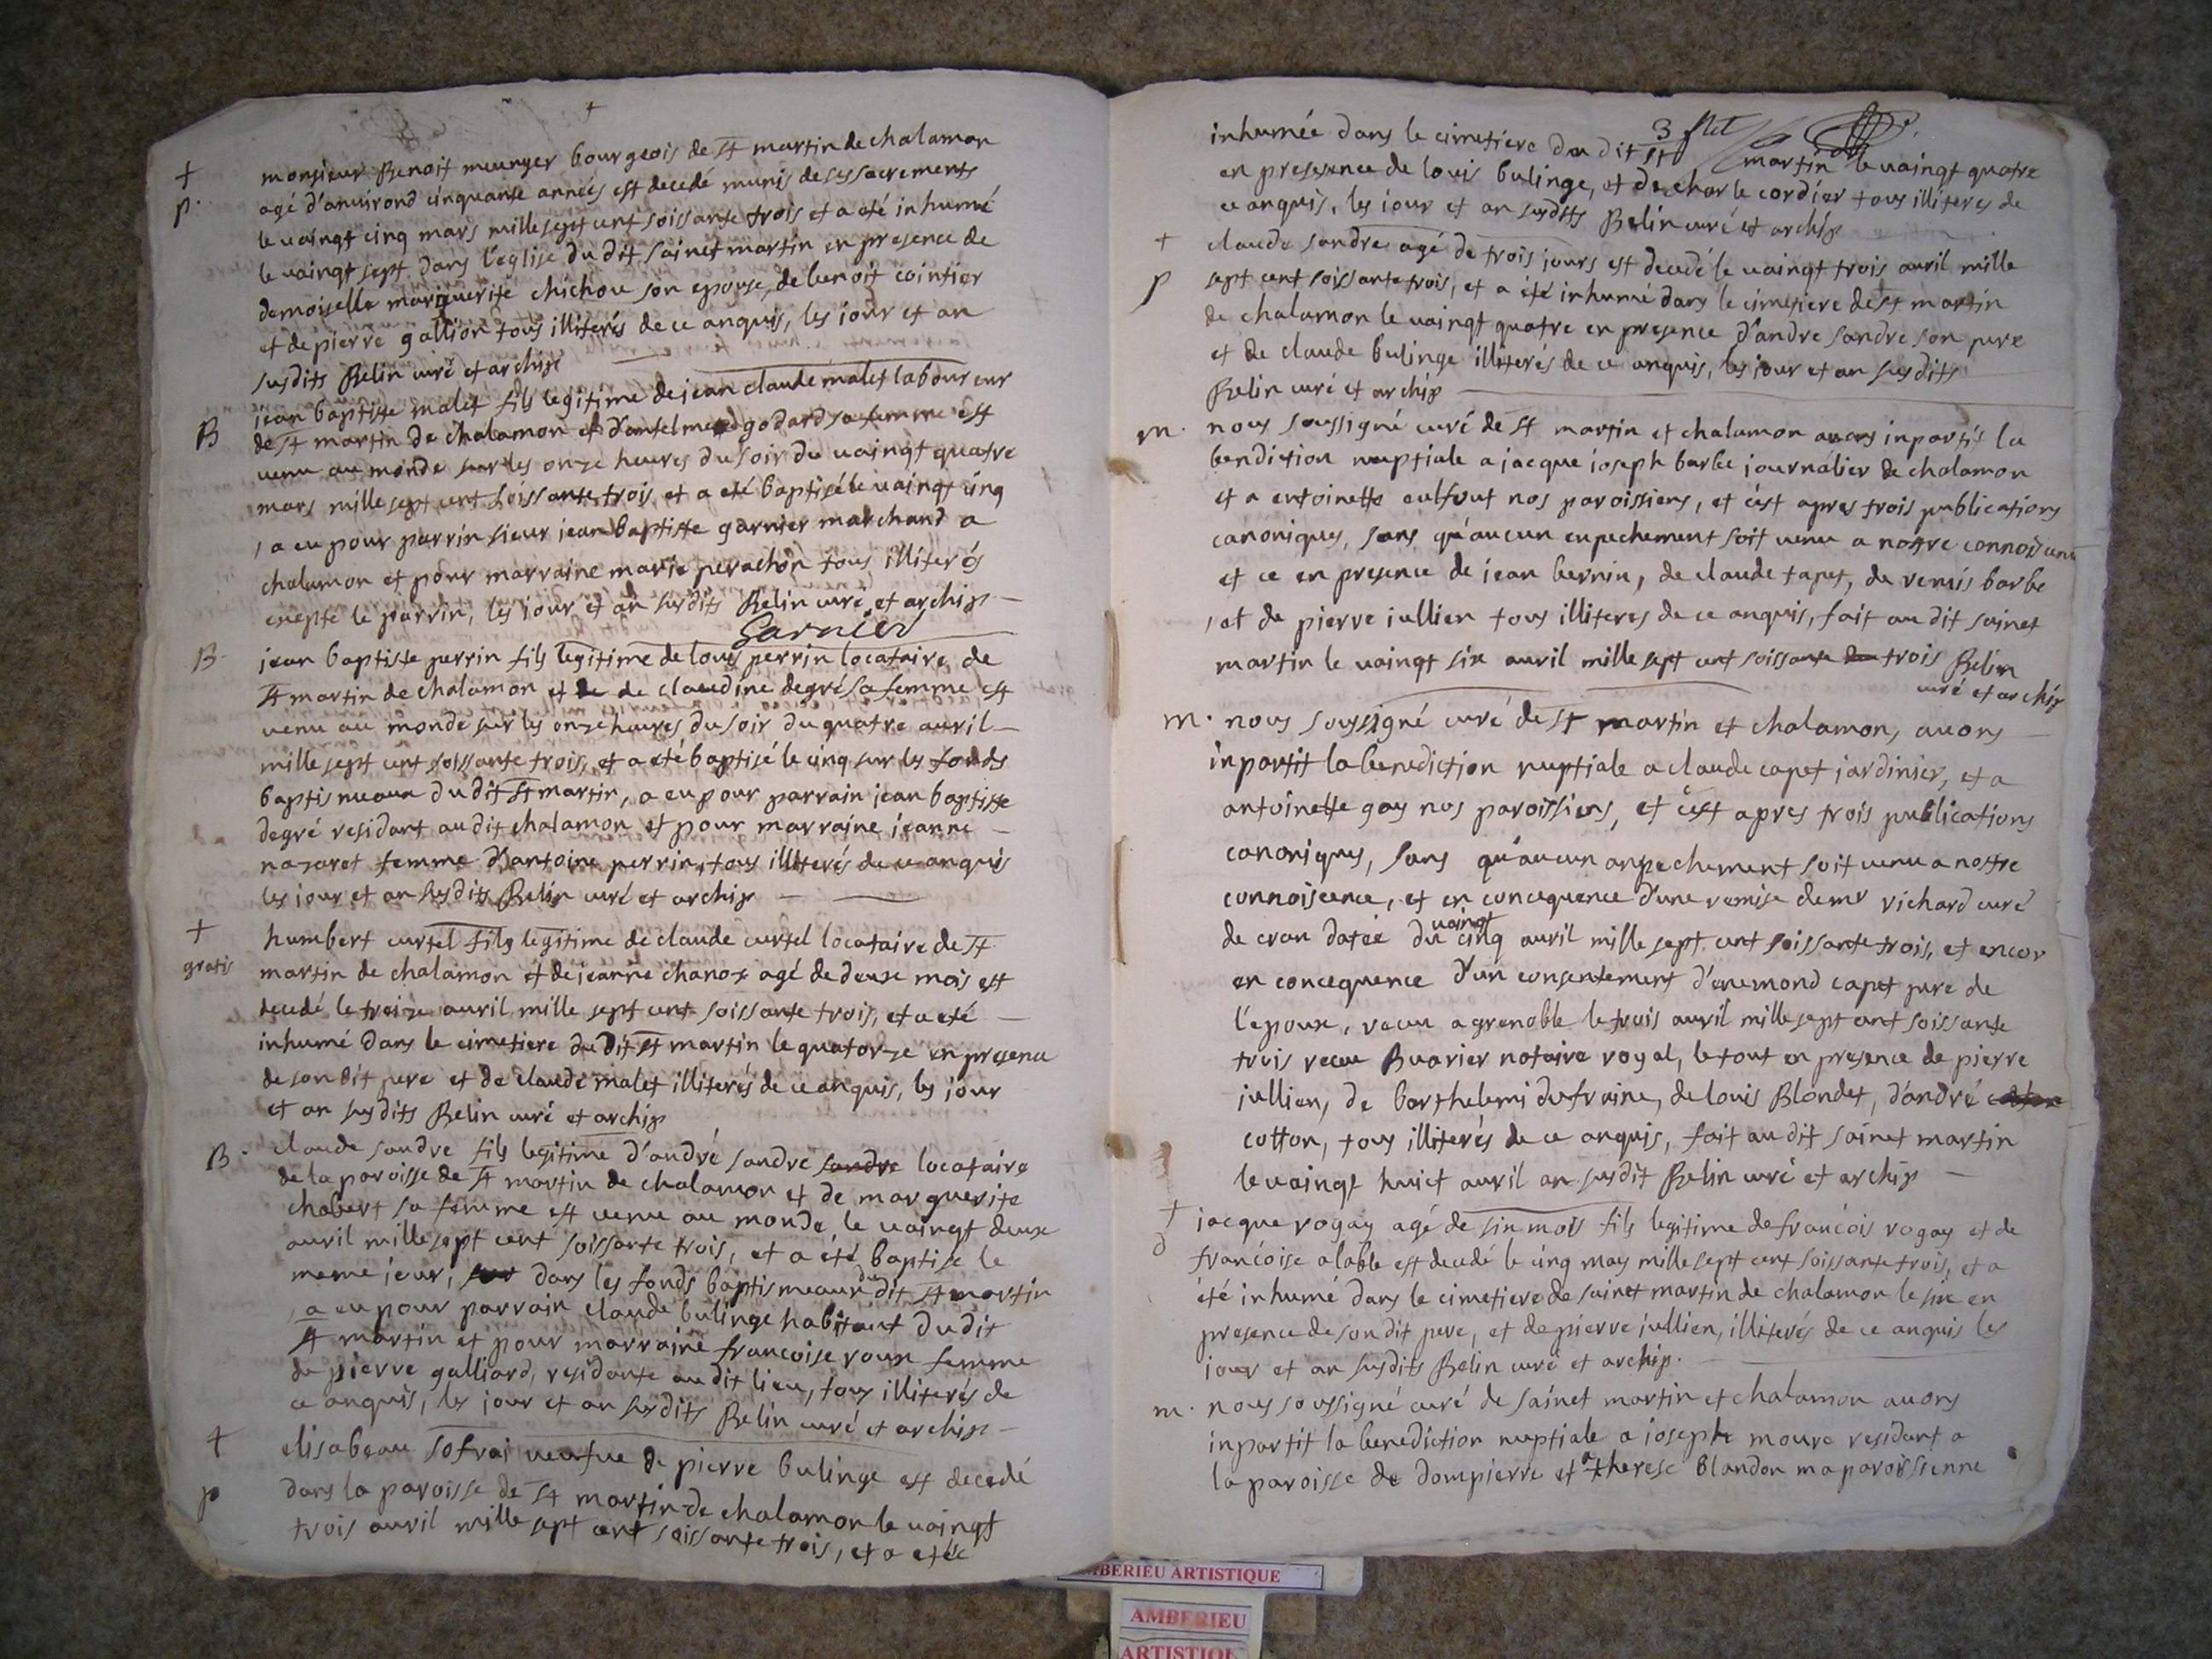 +
+ monsieur Benoit meunyer bourgeois de st martin de chalamon
p. agé d'anuirond cinquante années est decedé munis de ses sacrements
le vaingt cinq mars mille sept cent soissante trois et a eté inhumé
le vaingt sept dans l'église du dit sainct martin en presence de
demoiselle marguerite chichou son epouse, de benoit cointier
et de pierre gallion tous illiterés de ce anquis, les iour et an
susdits Belin curé et archip
jean baptiste malet fils legitime de jean claude malet laboureur
B de st martin de chalamon et d'antelmed godard sa femme est
venu au monde sur les onze heures du soir du vaingt quatre
mars mille sept cent soissante trois et a eté baptisé le vaingt cinq
, a eu pour parrin sieur jean baptiste garnier marchand a
chalamon et pour marraine marie perachon tous illiterés
exepté le parrin, les jour et an susdits Belin curé et archip
Garnier
B. jean baptiste perrin fils legitime de louis perrin locataire de
st martin de chalamon et de de claudine degré sa femme est
venu au monde sur les onze heures du soir du quatre auril
mille sept cent soissante trois, et a eté baptisé le cinq sur les fonds
baptismeaux du dit st martin, a eu pour parrain jean baptiste
degré residant au dit chalamon et pour marraine jeanne
nazaret femme d'antoine perrin, tous illiterés de ce anquis
les jour et an susdits Belin curé et archip
+ humbert curtel fils legitime de claude curtel locataire de st
gratis martin de chalamon et de jeanne chanoz agé de deux mois est
decedé le treize auril mille sept cent soissante trois, et a eté
inhumé dans le cimetiere du dit st martin le quatorze en presence
de son dit pere et de claude malet illiterés de ce anquis, les jour
et an susdits Belin curé et archip
B. claude sandre fils legitime d'andré sandre sandre locataire
de la paroisse de st martin de chalamon et de marguerite
chabert sa femme est venu au monde le vaingt deux
auril mille sept cent soissante trois, et a été baptisé le
meme jour, sur dans les fonds baptismeaux du dit st martin
, a eu pour parrain claude bulinge habitant du dit
st martin et pour marraine francoise roux femme
de pierre galliard, residante au dit lieu, tous illiterés de
ce anquis, les jour et an susdits Belin curé et archip
+ elisabeau sofrai veufue de pierre bulinge est decedé
p dans la paroisse de st martin de chalamon le vaingt
trois auril mille sept cent soissante trois, et a etée
3
inhumée dans le cimetiere du dit st martin le vaingt quatre
en presence de louis bulinge, et de charle cordier tous illiteres de
ce anquis, les iour et an susdits Belin curé et archip
+ claude sandre agé de trois jours est decedé le vaingt trois auril mille
p sept cent soissante trois, et a été inhumé dans le cimetiere de st martin
de chalamon le vaingt quatre en presence d'andre sandre son pere
et de claude bulinge illiterés de ce anquis, les jour et an susdits
Belin curé et archip
m. nous soussigné curé de st martin et chalamon auons inpartis la
bendiction nuptiale a jacque ioseph barbe journalier de chalamon
et a entoinette nos paroissiens, et c'est apres trois publications
canoniques, sans qu'aucun enpechement soit venu a nostre connoissance
et ce en presence de jean bernin, de claude tapet, de barbe
, et de pierre iullien tous illiteres de ce anquis, fait au dit sainct
martin le vaingt six auril mille sept cent soissante trois Belin
curé et archip
m. nous soussigné curé de st martin et chalamon, auons
inpartit la benediction nuptiale a claude capet jardinier, et a
antoinette gay nos paroissiens, et c'est apres trois publications
canoniques, sans qu'aucun anpechement soit venu a nostre
connoiscence, et en concequence d'une remise de mr richard curé
de cran datée du vaingt cinq auril mille sept cent soissante trois, et encor
en concequence d'un consentement d'enemond capet pere de
l'epoux, recu a grenoble le trois auril mille sept cent soissante
trois recu Buarier notaire royal, le tout en presence de pierre
jullien, de barthelemi dufraine, de louis Blondet, d'andré
cotton, tous illiterés de ce anquis, fait au dit sainct martin
le vaingt huict auril an susdit Belin curé et archip
+ jacque rogay agé de six mois fils legitime de francois rogay et de
francoise alable est decedé le cinq may mille sept cent soissante trois, et a
été inhumé dans le cimetiere de sainct martin de chalamon le six en
presence de son dit pere, et de pierre jullien, illiterés de ce anquis les
jour et an susdits Belin curé et archip.
m. nous soussigné curé de sainct martin et chalamon auons
inpartit la benediction nuptiale a joseph moure residant a
la paroisse de dompierre et a therese blandon ma paroissienne
AMBERIEU ARTISTIQUE
AMBERIEU
ARTISTIQUE